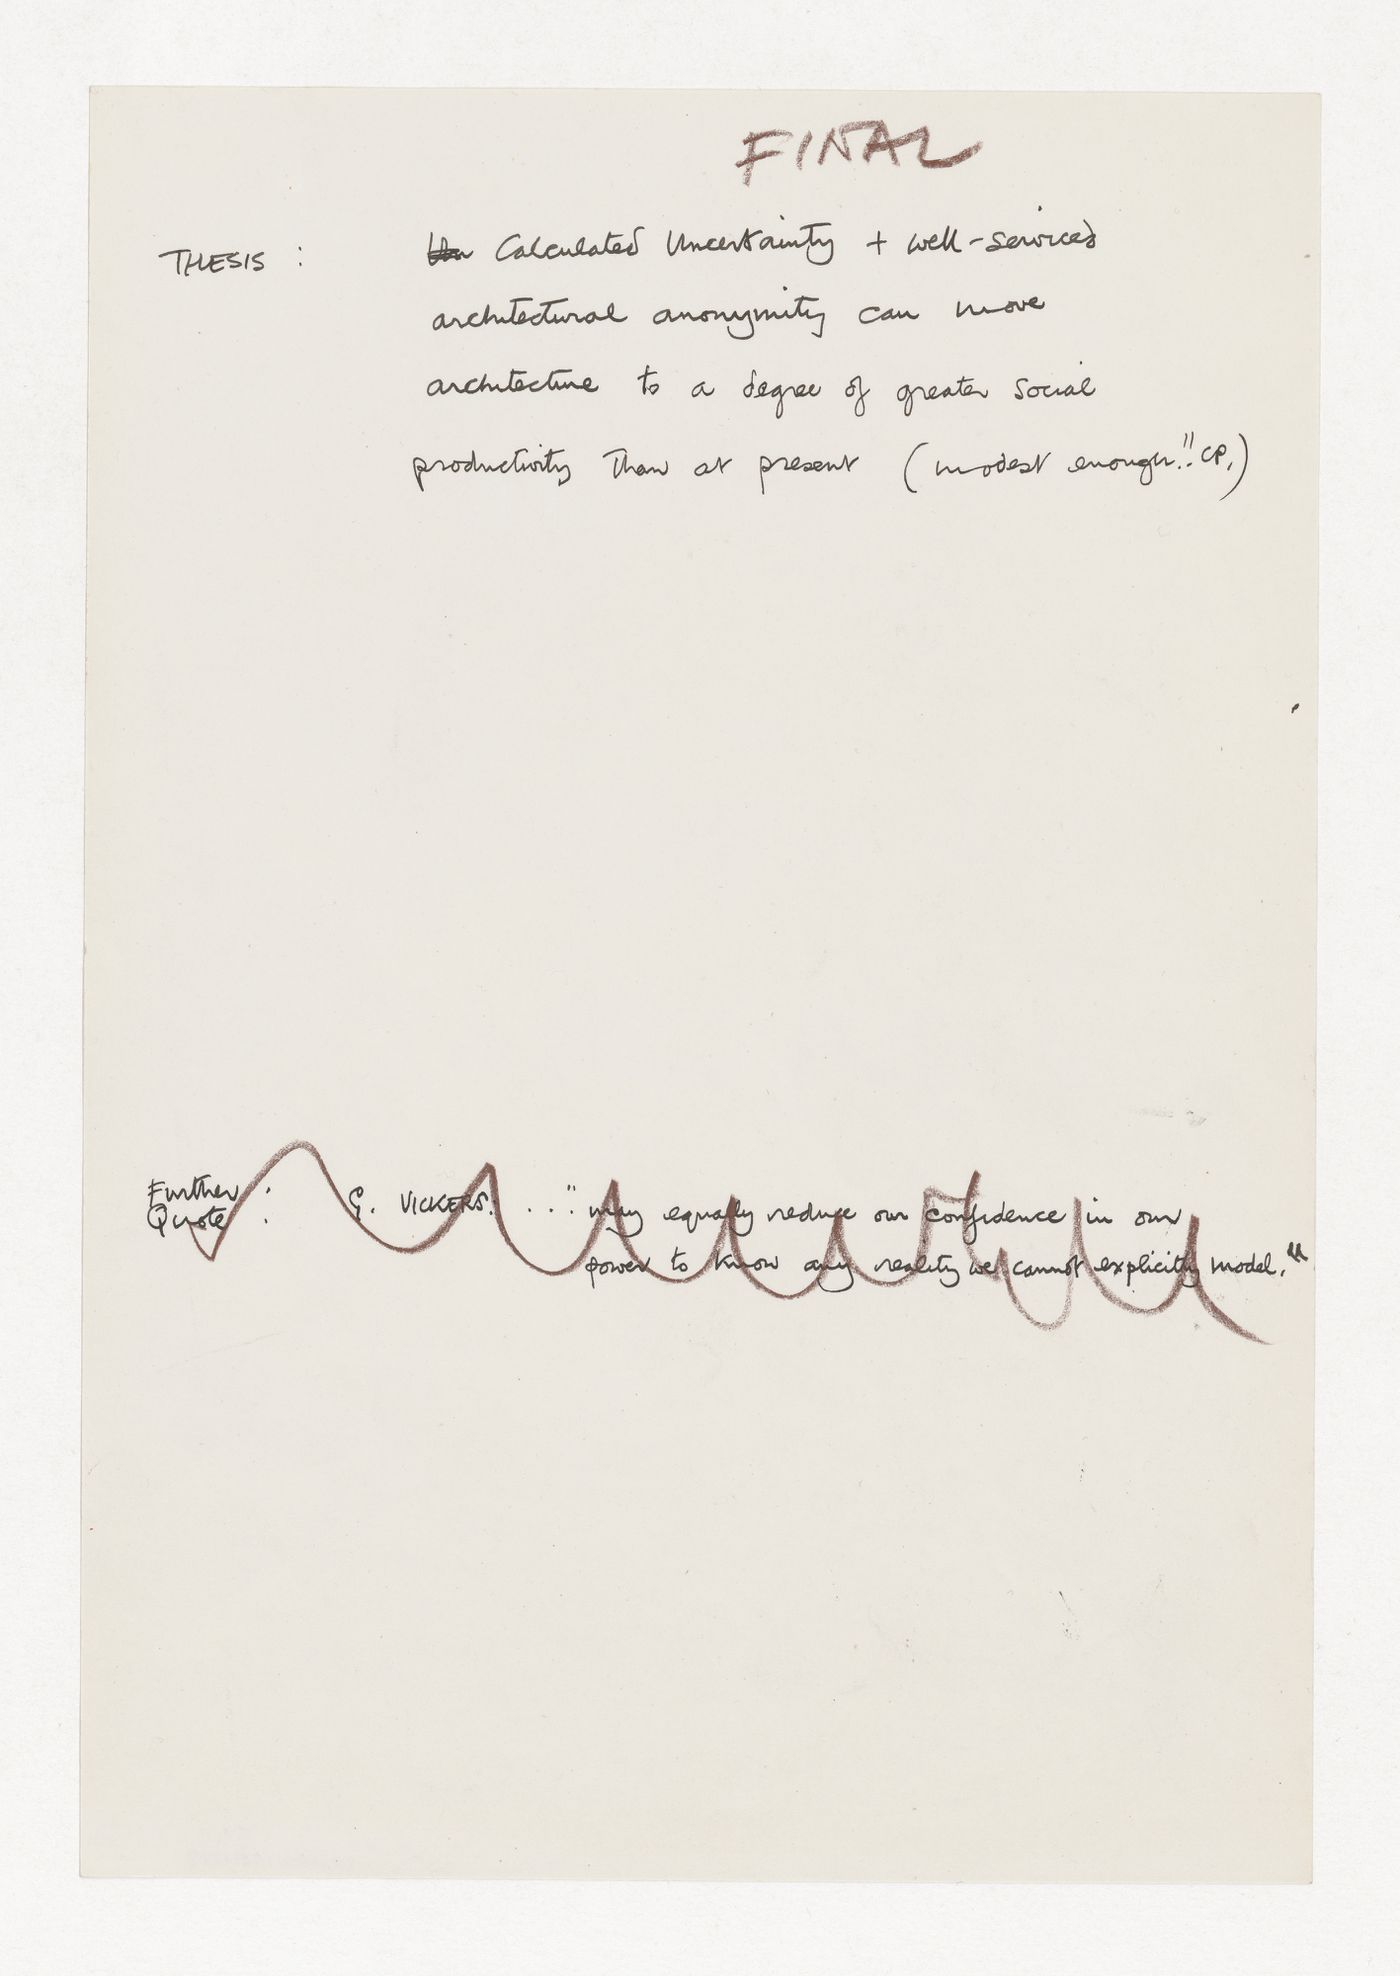 FINAL
THESIS : Calculated Uncertainty + well-serviced
architectural anonymity can move
architecture to a degree of greater social
productivity than at present (modest enough!! CP.)
Further Quote : G. VICKERS: ..." may equally reduce our confidence in our
power to know any reality we cannot explicitly model."